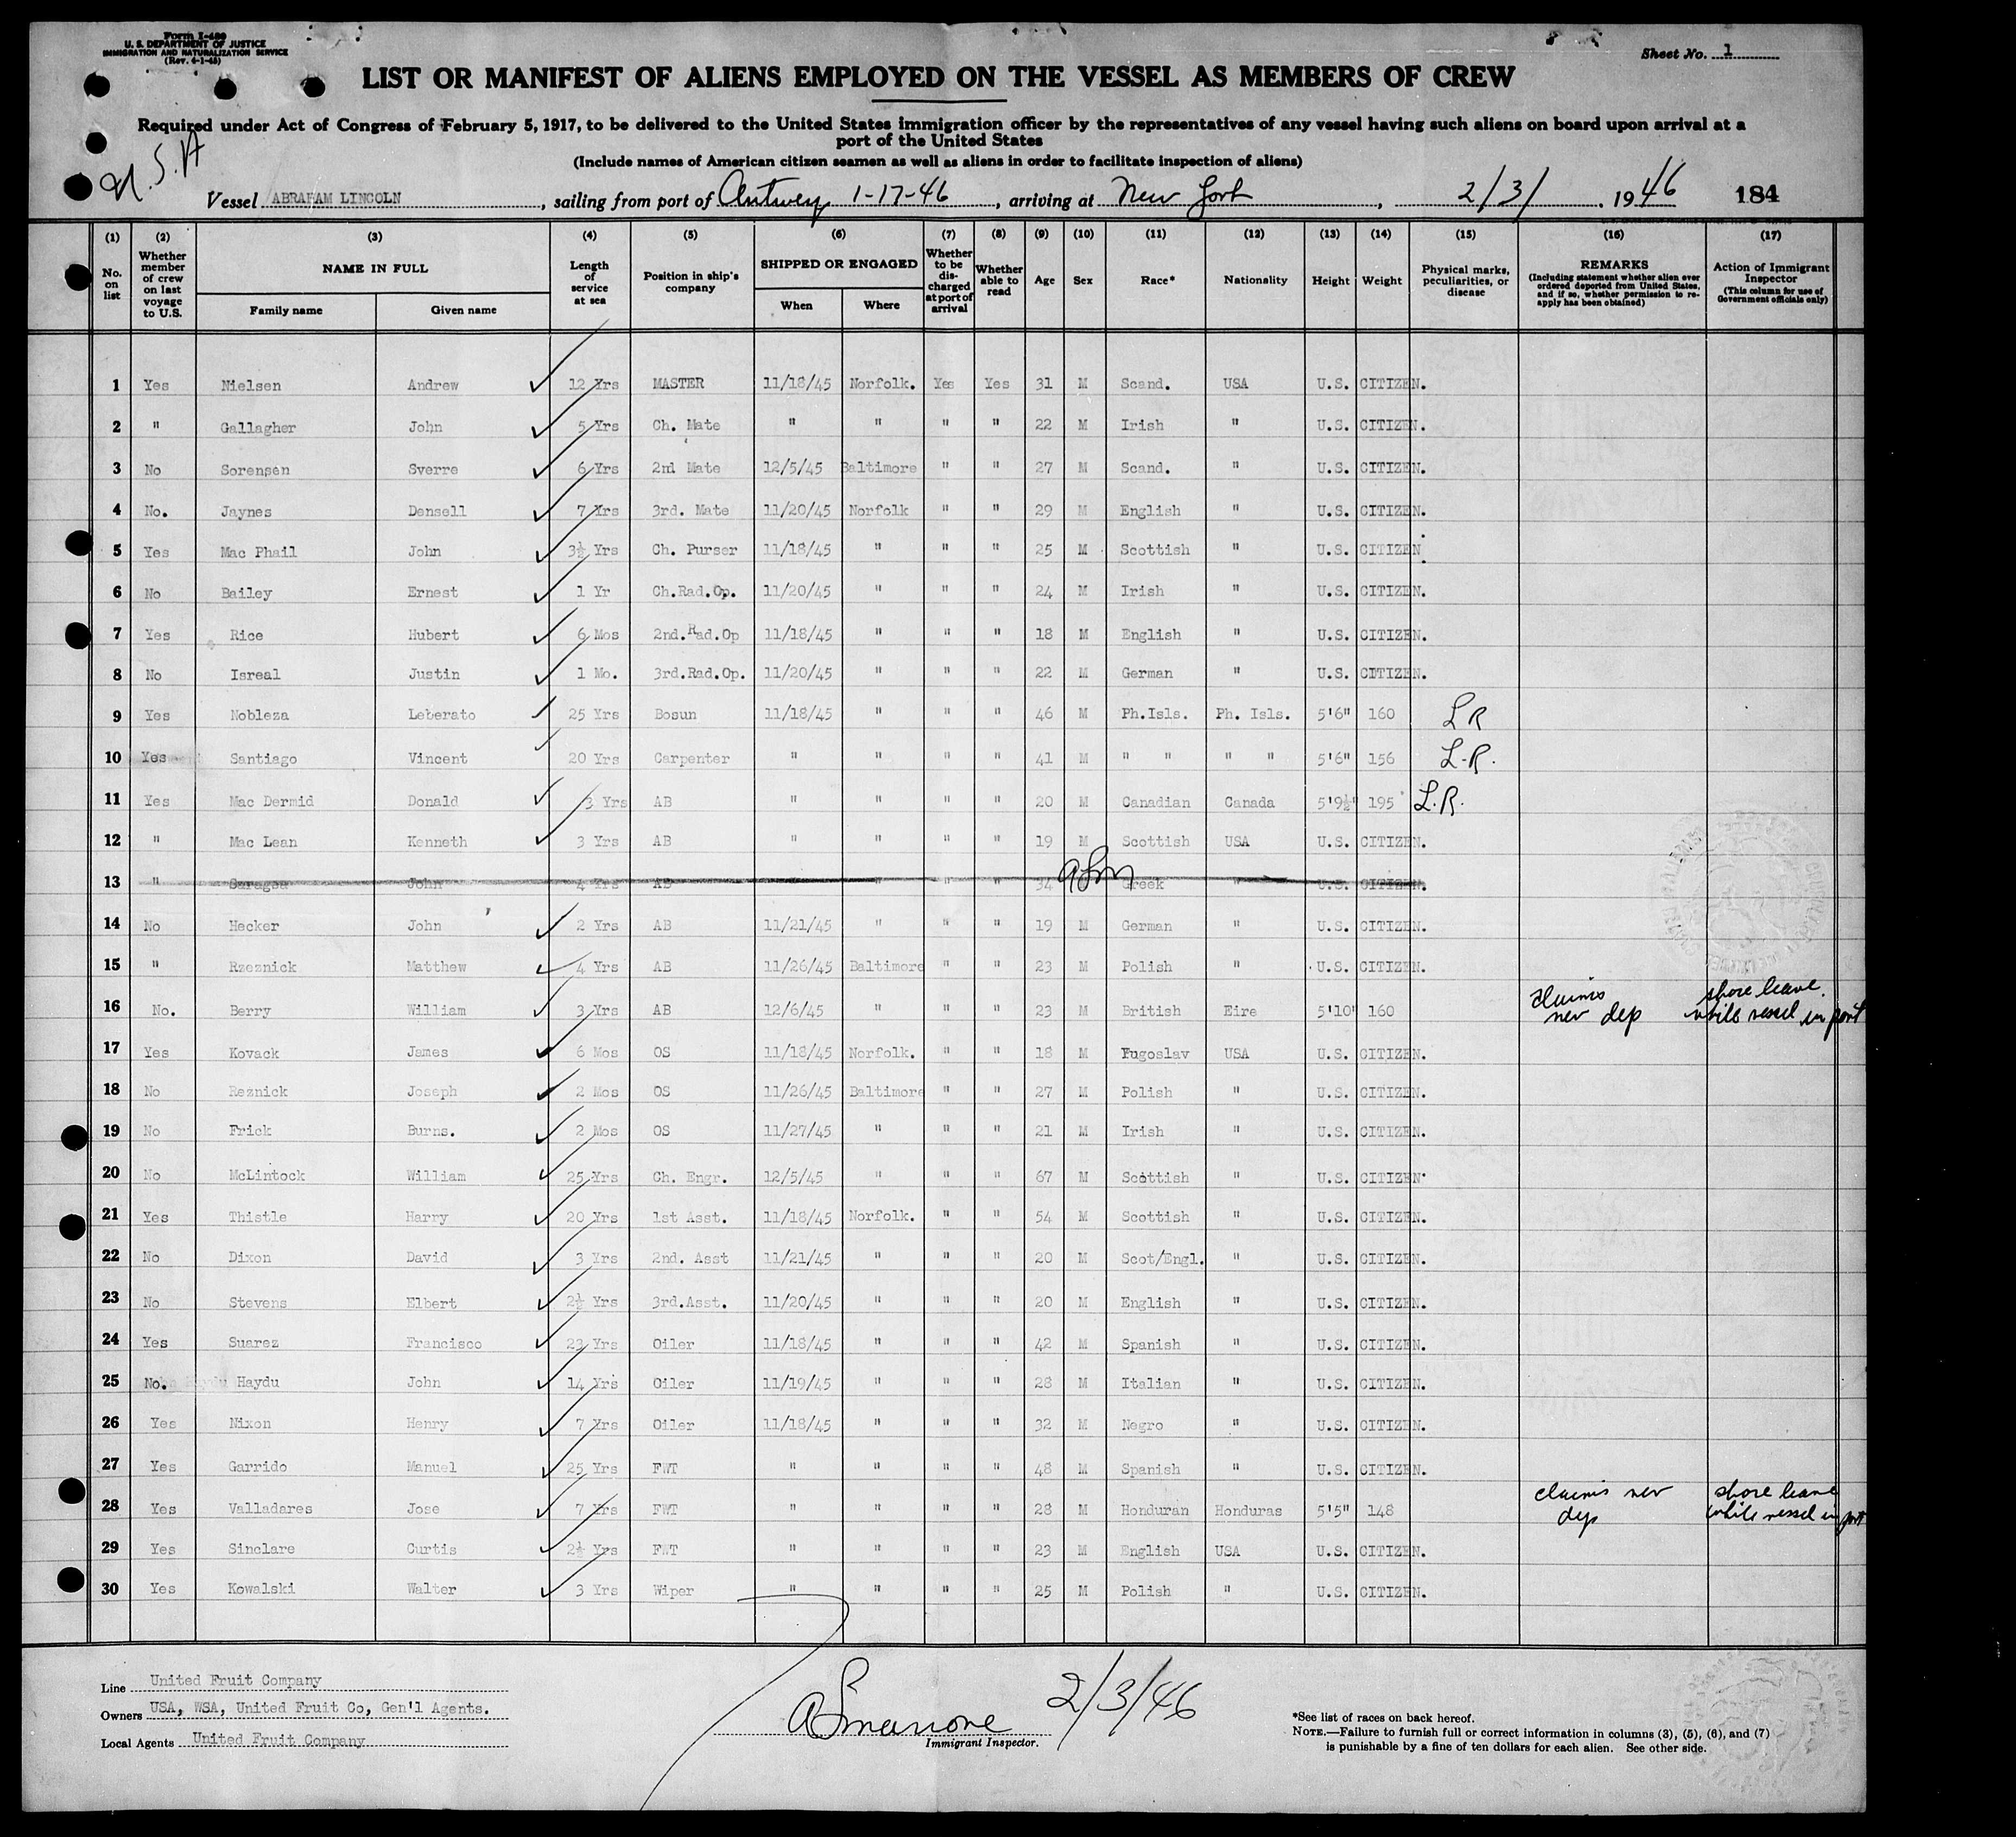 Form I-489
U. S. DEPARTMENT OF JUSTICE
IMMIGRATION AND NATURALIZATION SERVICE
(Rev. 4-1-45)
Sheet No. 1
LIST OR MANIFEST OF ALIENS EMPLOYED ON THE VESSEL AS MEMBERS OF CREW
Required under Act of Congress of February 5, 1917, to be delivered to the United States immigration officer by the representatives of any vessel having such aliens on board upon arrival at a
port of the United States
(Include names of American citizen seamen as well as aliens in order to facilitate inspection of aliens)
Vessel ABRAHAM LINCOLN, sailing from port of Antwerp 1-17-46, arriving at New York, 2/3/ 1946 184
(1) (2) (3) (4) (5) (6) (7) (8) (9) (10) (11) (12) (13) (14) (15) (16) (17)
No. on list Whether member of crew on last voyage to U.S. NAME IN FULL Family name Given name Length of service at sea Position in ship's company SHIPPED OR ENGAGED When Where Whether to be discharged at port of arrival Whether able to read Age Sex Race* Nationality Height Weight Physical marks, peculiarities, or disease REMARKS (Including statement whether alien ever ordered deported from United States, and if so, whether permission to reapply has been obtained) Action of Immigrant Inspector (This column for use of Government officials only)
1 Yes Nielsen Andrew 12 Yrs MASTER 11/18/45 Norfolk. Yes Yes 31 M Scand. USA U.S. CITIZEN.
2 " Gallagher John 5 Yrs Ch. Mate " " " " 22 M Irish " U.S. CITIZEN.
3 No Sorensen Sverre 6 Yrs 2nd Mate 12/5/45 Baltimore " " 27 M Scand. " U.S. CITIZEN.
4 No. Jaynes Densell 7 Yrs 3rd. Mate 11/20/45 Norfolk " " 29 M English " U.S. CITIZEN.
5 Yes Mac Phail John 3½ Yrs Ch. Purser 11/18/45 " " " 25 M Scottish " U.S. CITIZEN
6 No Bailey Ernest 1 Yr Ch.Rad.Op. 11/20/45 " " " 24 M Irish " U.S. CITIZEN.
7 Yes Rice Hubert 6 Mos 2nd.Rad.Op 11/18/45 " " " 18 M English " U.S. CITIZEN.
8 No Isreal Justin 1 Mo. 3rd.Rad.Op. 11/20/45 " " " 22 M German " U.S. CITIZEN.
9 Yes Nobleza Leberato 25 Yrs Bosun 11/18/45 " " " 46 M Ph.Isls. Ph. Isls. 5'6" 160 L R
10 Yes Santiago Vincent 20 Yrs Carpenter " " " " 41 M " " " " 5'6" 156 L.R.
11 Yes Mac Dermid Donald 3 Yrs AB " " " " 20 M Canadian Canada 5'9½" 195 L.R.
12 " Mac Lean Kenneth 3 Yrs AB " " " " 19 M Scottish USA U.S. CITIZEN.
13 " John 4 Yrs AB " " " " 34 Greek " U.S. CITIZEN.
14 No Hecker John 2 Yrs AB 11/21/45 " " " 19 M German " U.S. CITIZEN.
15 " Rzeznick Matthew 4 Yrs AB 11/26/45 Baltimore " " 23 M Polish " U.S. CITIZEN.
16 No. Berry William 3 Yrs AB 12/6/45 " " " 23 M British Eire 5'10" 160 claims nev dep shore leave. while vessel in port
17 Yes Kovack James 6 Mos OS 11/18/45 Norfolk. " " 18 M Yugoslav USA U.S. CITIZEN.
18 No Reznick Joseph 2 Mos OS 11/26/45 Baltimore " " 27 M Polish " U.S. CITIZEN.
19 No Frick Burns. 2 Mos OS 11/27/45 " " " 21 M Irish " U.S. CITIZEN.
20 No McLintock William 25 Yrs Ch. Engr. 12/5/45 " " " 67 M Scottish " U.S. CITIZEN.
21 Yes Thistle Harry 20 Yrs 1st Asst. 11/18/45 Norfolk. " " 54 M Scottish " U.S. CITIZEN.
22 No Dixon David 3 Yrs 2nd. Asst 11/21/45 " " " 20 M Scot/Engl. " U.S. CITIZEN.
23 No Stevens Elbert 2½ Yrs 3rd.Asst. 11/20/45 " " " 20 M English " U.S. CITIZEN.
24 Yes Suarez Francisco 23 Yrs Oiler 11/18/45 " " " 42 M Spanish " U.S. CITIZEN.
25 No. Haydu John 14 Yrs Oiler 11/19/45 " " " 28 M Italian " U.S. CITIZEN.
26 Yes Nixon Henry 7 Yrs Oiler 11/18/45 " " " 32 M Negro " U.S. CITIZEN.
27 Yes Garrido Manuel 25 Yrs FWT " " " " 48 M Spanish " U.S. CITIZEN.
28 Yes Valladares Jose 7 Yrs FWT " " " " 28 M Honduran Honduras 5'5" 148 claims nev dep shore leave while vessel in port
29 Yes Sinclare Curtis 2½ Yrs FWT " " " " 23 M English USA U.S. CITIZEN.
30 Yes Kowalski Walter 3 Yrs Wiper " " " " 25 M Polish " U.S. CITIZEN.
Line United Fruit Company
Owners USA, WSA, United Fruit Co, Gen'l Agents.
Local Agents United Fruit Company
2/3/46
Immigrant Inspector.
*See list of races on back hereof.
NOTE.—Failure to furnish full or correct information in columns (3), (5), (6), and (7)
is punishable by a fine of ten dollars for each alien. See other side.